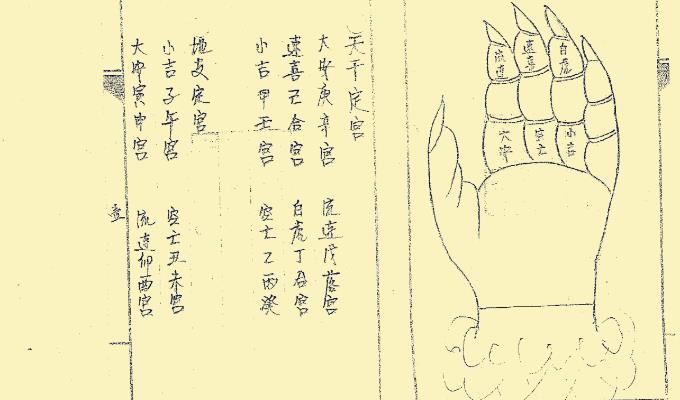 白虎
速喜
流連
小吉
空亡
大安
天干定宫
大安庚辛宫 流連戊落宫
速喜己合宫 白虎丁君宫
小吉甲壬宫 空亡乙丙癸
地支定宫
小吉子午宫 空亡丑未宫
大安寅申宫 流連卯酉宫